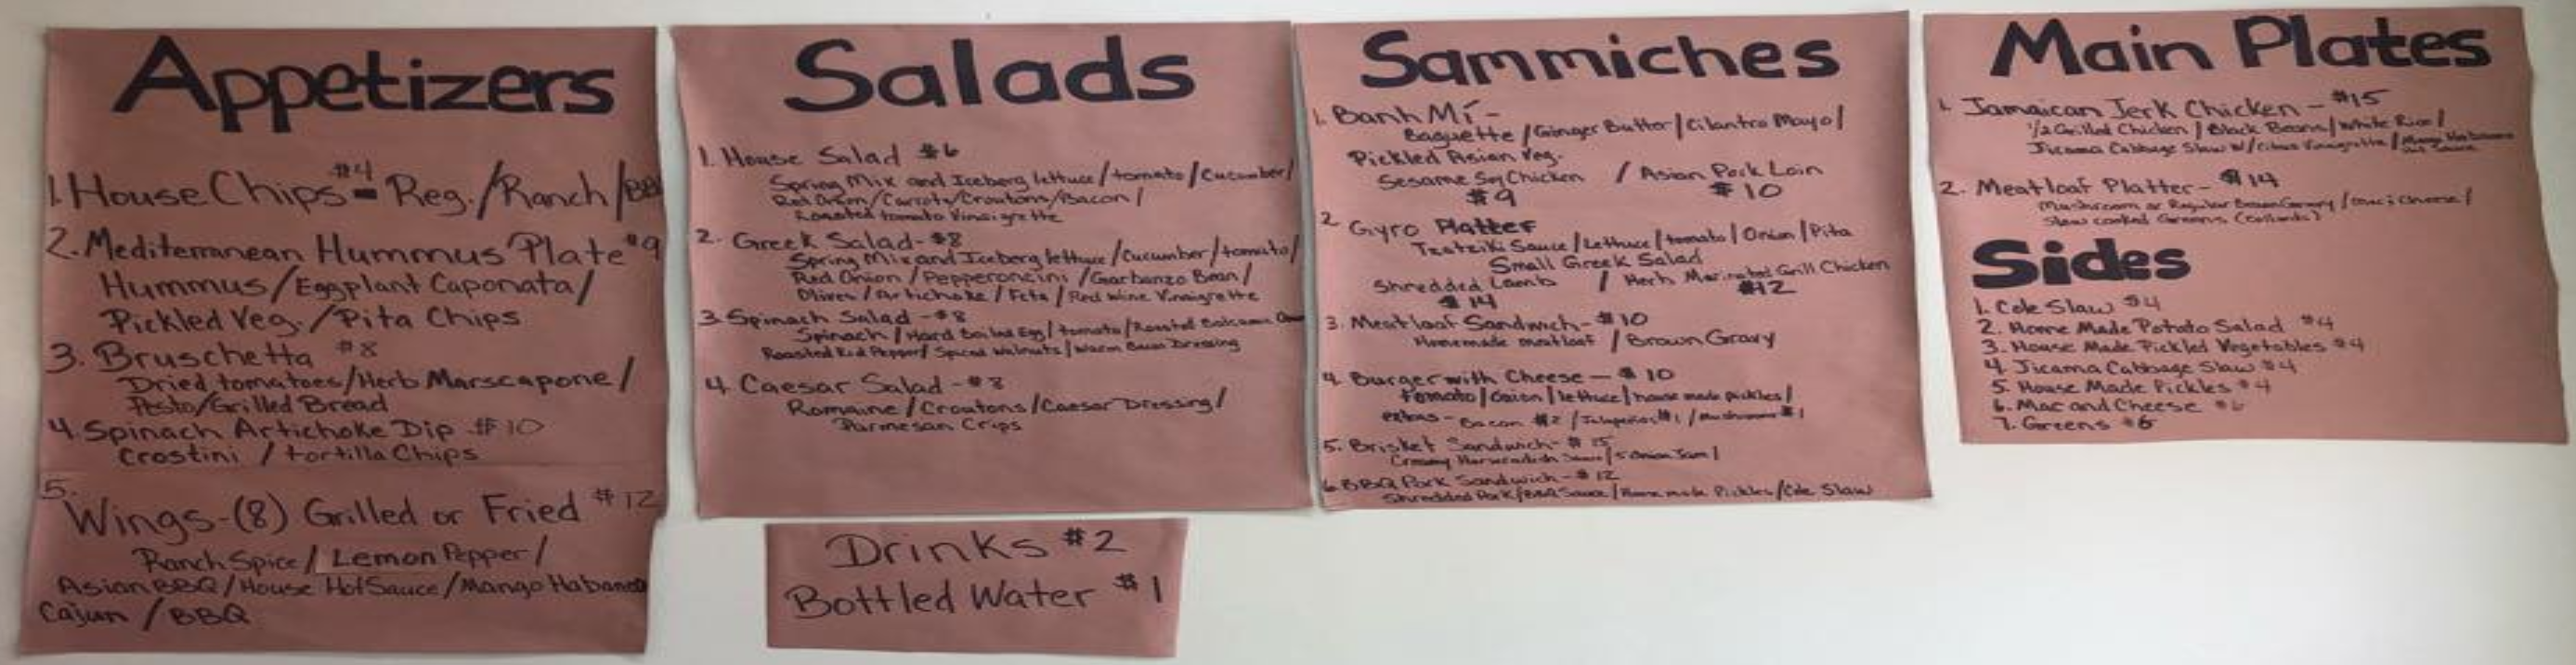 Appetizers
$4
1. House Chips - Reg./Ranch/BB
2. Mediterranean Hummus Plate $9
Hummus/Eggplant Caponata/
Pickled Veg./Pita Chips
3. Bruschetta $8
Dried tomatoes/Herb Marscapone/
Pesto/Grilled Bread
4. Spinach Artichoke Dip $10
Crostini / tortilla Chips
5.
Wings-(8) Grilled or Fried $12
Ranch Spice/ Lemon Pepper/
Asian BBQ/House Hot Sauce/Mango Habanero
Cajun / BBQ
Salads
1. House Salad $6
Spring Mix and Iceberg lettuce/tomato/Cucumber/
Red Onion/Carrots/Croutons/Bacon/
Roasted tomato Vinaigrette
2. Greek Salad- $8
Spring Mix and Iceberg lettuce/Cucumber/tomato/
Red Onion/Pepperoncini/Garbanzo Bean/
Olives/Artichoke/Feta/Red Wine Vinaigrette
3. Spinach Salad - $8
Spinach/Hard Boiled Egg/tomato/Roasted Balsamic
Roasted Red Pepper/Spiced Walnuts/Warm Bacon Dressing
4. Caesar Salad - $8
Romaine/Croutons/Caesar Dressing/
Parmesan Crips
Drinks $2
Bottled Water $1
Sammiches
1. Banh Mí -
Baguette/Ginger Butter/Cilantro Mayo/
Pickled Asian Veg.
Sesame Soy Chicken / Asian Pork Loin
$9 $10
2 Gyro Platter
Tzatziki Sauce/Lettuce/tomato/Onion/Pita
Small Greek Salad
Shredded Lamb / Herb Marinated Grill Chicken
$14 $12
3. Meatloaf Sandwich- $10
Homemade meatloaf / Brown Gravy
4. Burger with Cheese - $10
tomato/onion/lettuce/house made pickles/
extras- Bacon $2 /Jalapeños $1 /Mushrooms $1
5. Brisket Sandwich- $15
Creamy Horseradish Sauce/5 Onion Jam/
6. BBQ Pork Sandwich- $12
Shredded Pork/BBQ Sauce/Home made Pickles/Cole Slaw
Main Plates
1. Jamaican Jerk Chicken - $15
1/2 Grilled Chicken/Black Beans/White Rice/
Jicama Cabbage Slaw w/Citrus Vinaigrette/Mango Habanero
Hot Sauce
2. Meatloaf Platter- $14
Mushroom or Regular Brown Gravy/Mac & Cheese/
Slow cooked Greens (collards)
Sides
1. Cole Slaw $4
2. Home Made Potato Salad $4
3. House Made Pickled Vegetables $4
4. Jicama Cabbage Slaw $4
5. House Made Pickles $4
6. Mac and Cheese $6
7. Greens $6